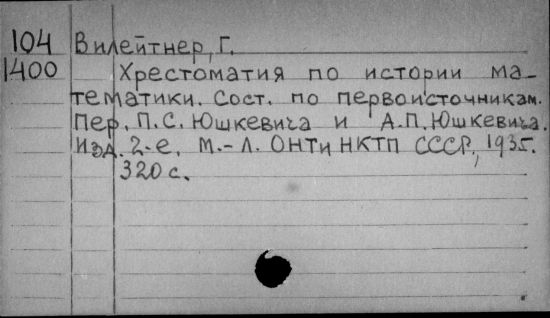 104 Вилейтнер, Г.
1400 Хрестоматия по истории ма-
тематики. Сост. по первоисточникам.
Пер. П.С. Юшкевича и А.П. Юшкевича.
Изд. 2-е. М.-Л. ОНТИ НКТП СССР, 1935.
320 с.